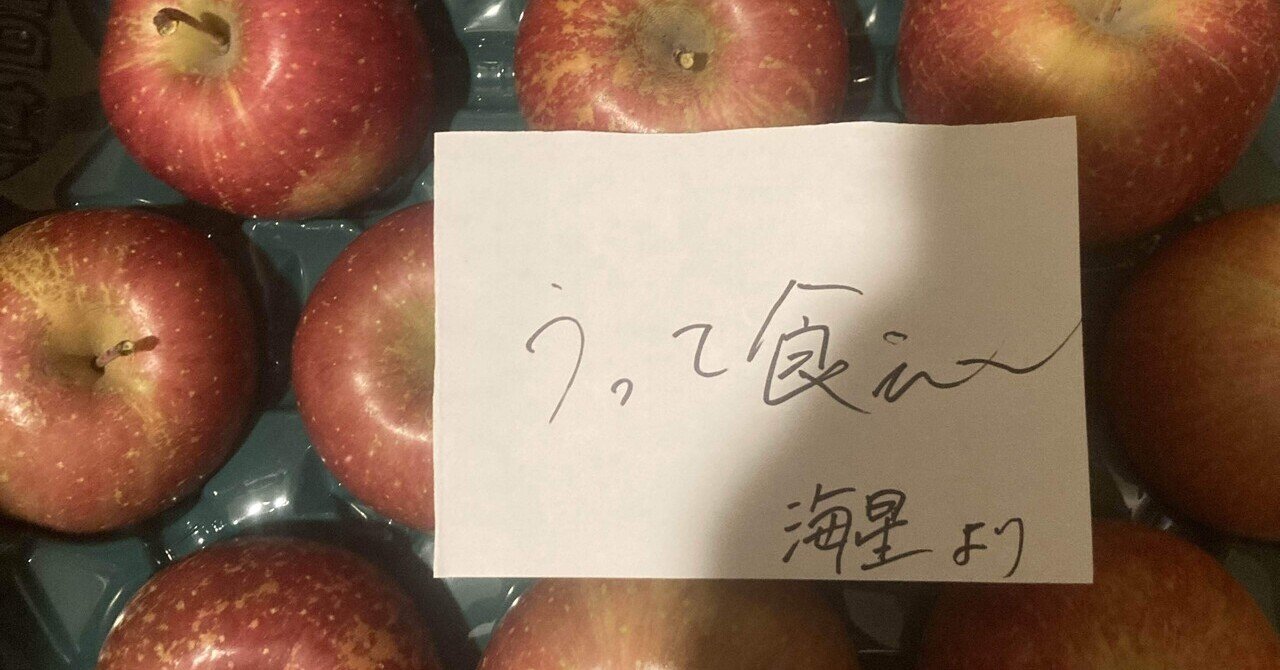 うって食えー
海星より